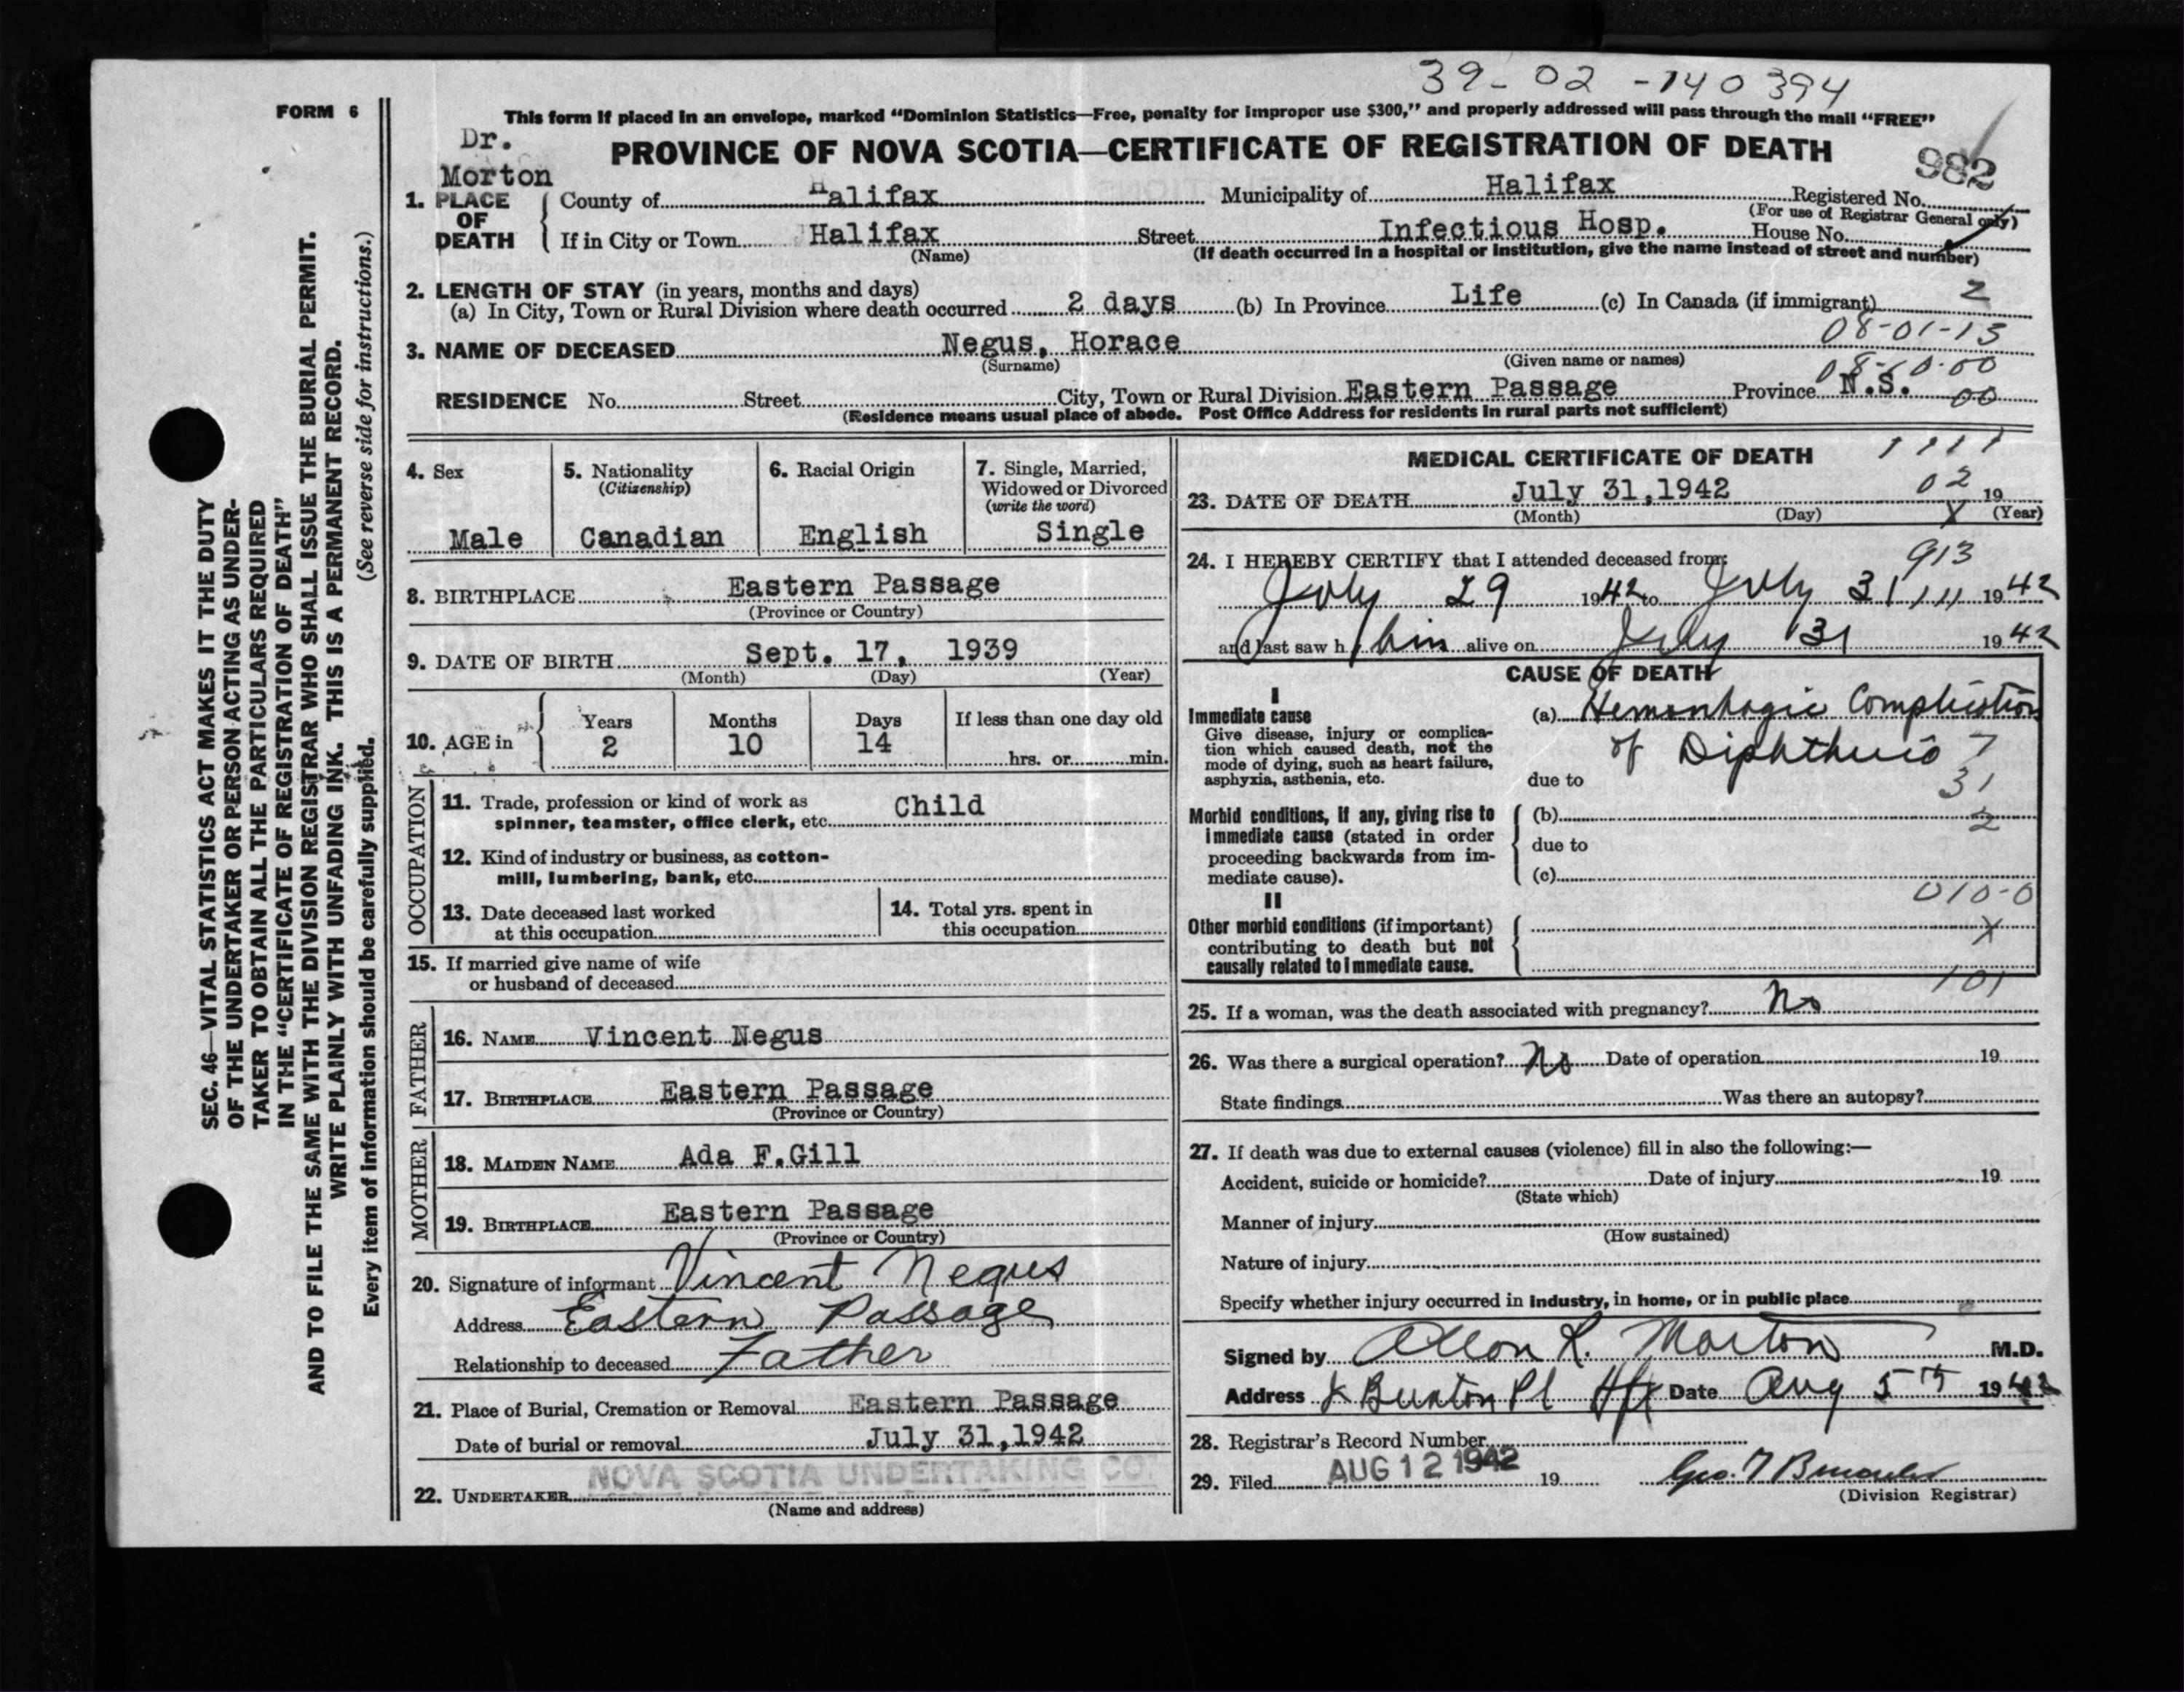 39-02-140394
FORM 6
This form if placed in an envelope, marked “Dominion Statistics—Free, penalty for improper use $300,” and properly addressed will pass through the mail “FREE”
Dr.
Morton
PROVINCE OF NOVA SCOTIA—CERTIFICATE OF REGISTRATION OF DEATH
982
1. PLACE OF DEATH
County of Halifax Municipality of Halifax Registered No.
(For use of Registrar General only)
If in City or Town Halifax Street Infectious Hosp. House No.
(Name) (If death occurred in a hospital or institution, give the name instead of street and number)
2. LENGTH OF STAY (in years, months and days)
(a) In City, Town or Rural Division where death occurred 2 days (b) In Province Life (c) In Canada (if immigrant) 2
08-01-13
3. NAME OF DECEASED Negus, Horace
(Surname) (Given name or names)
08-10-00
RESIDENCE No. Street City, Town or Rural Division Eastern Passage Province N.S. 00
(Residence means usual place of abode. Post Office Address for residents in rural parts not sufficient)
SEC. 46—VITAL STATISTICS ACT MAKES IT THE DUTY
OF THE UNDERTAKER OR PERSON ACTING AS UNDER-
TAKER TO OBTAIN ALL THE PARTICULARS REQUIRED
IN THE “CERTIFICATE OF REGISTRATION OF DEATH”
AND TO FILE THE SAME WITH THE DIVISION REGISTRAR WHO SHALL ISSUE THE BURIAL PERMIT.
WRITE PLAINLY WITH UNFADING INK. THIS IS A PERMANENT RECORD.
Every item of information should be carefully supplied. (See reverse side for instructions.)
4. Sex
Male
5. Nationality
(Citizenship)
Canadian
6. Racial Origin
English
7. Single, Married,
Widowed or Divorced
(write the word)
Single
8. BIRTHPLACE Eastern Passage
(Province or Country)
9. DATE OF BIRTH Sept. 17, 1939
(Month) (Day) (Year)
10. AGE in
Years Months Days If less than one day old
2 10 14 hrs. or min.
OCCUPATION
11. Trade, profession or kind of work as
spinner, teamster, office clerk, etc. Child
12. Kind of industry or business, as cotton-
mill, lumbering, bank, etc.
13. Date deceased last worked
at this occupation
14. Total yrs. spent in
this occupation
15. If married give name of wife
or husband of deceased
FATHER
16. NAME Vincent Negus
17. BIRTHPLACE Eastern Passage
(Province or Country)
MOTHER
18. MAIDEN NAME Ada F.Gill
19. BIRTHPLACE Eastern Passage
(Province or Country)
20. Signature of informant Vincent Negus
Address Eastern Passage
Relationship to deceased Father
21. Place of Burial, Cremation or Removal Eastern Passage
Date of burial or removal July 31,1942
NOVA SCOTIA UNDERTAKING CO.
22. UNDERTAKER
(Name and address)
MEDICAL CERTIFICATE OF DEATH 1111
02
23. DATE OF DEATH July 31,1942 19
(Month) (Day) X (Year)
24. I HEREBY CERTIFY that I attended deceased from: 913
July 29 1942 to July 31 1942
and last saw h him alive on July 31 1942
CAUSE OF DEATH
I
Immediate cause
Give disease, injury or complica-
tion which caused death, not the
mode of dying, such as heart failure,
asphyxia, asthenia, etc.
(a) Hemorrhagic Complication
of Diphtheria 7
due to 31
Morbid conditions, if any, giving rise to
immediate cause (stated in order
proceeding backwards from im-
mediate cause).
(b) 2
due to
(c)
010-0
II
Other morbid conditions (if important)
contributing to death but not
causally related to immediate cause.
X
101
25. If a woman, was the death associated with pregnancy? No
26. Was there a surgical operation? No Date of operation 19
State findings Was there an autopsy?
27. If death was due to external causes (violence) fill in also the following:—
Accident, suicide or homicide? Date of injury 19
(State which)
Manner of injury
(How sustained)
Nature of injury
Specify whether injury occurred in industry, in home, or in public place
Signed by Allon R. Morton M.D.
Address Pl Hfx Date Aug 5th 1942
28. Registrar's Record Number
29. Filed AUG 12 1942 19 Geo.
(Division Registrar)